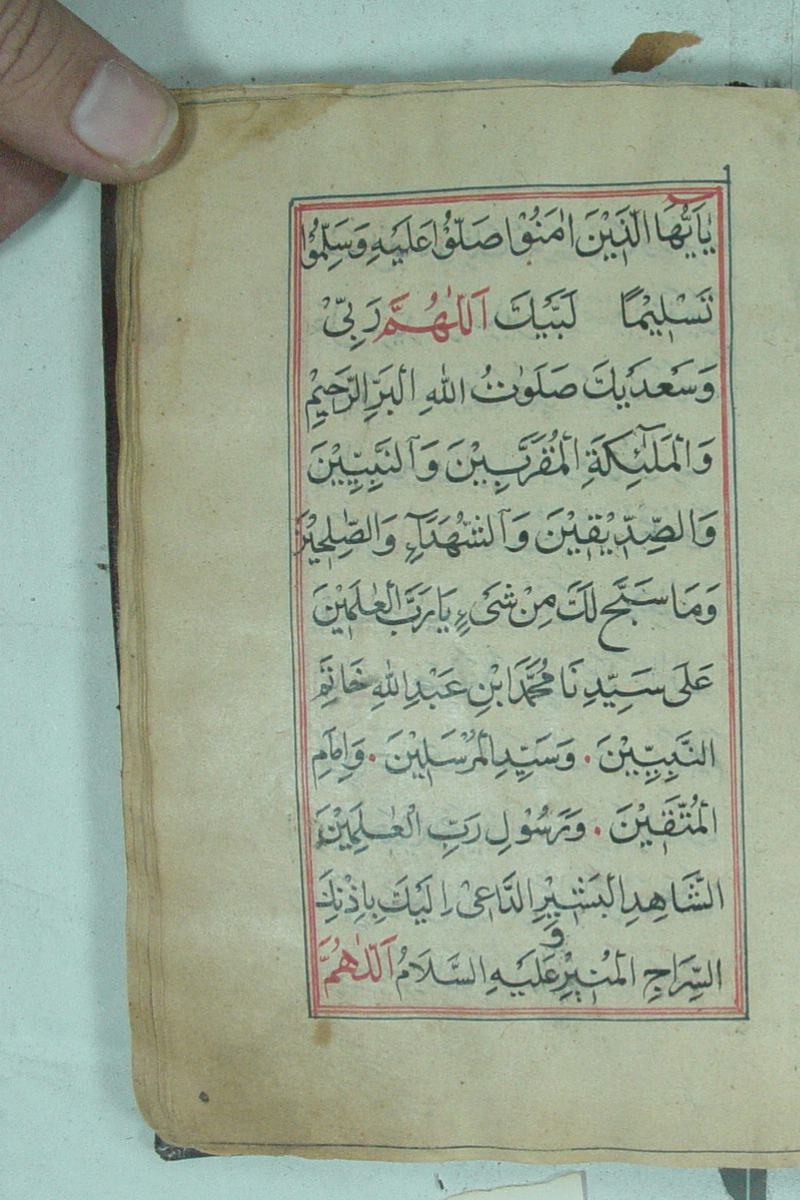 يٰاَيُّهَا الَّذِيْنَ اٰمَنُوْا صَلُّوْا عَلَيْهِ وَسَلِّمُوْا
تَسْلِيْمًا لَبَّيْكَ اَللّٰهُمَّ رَبِّىْ
وَسَعْدَيْكَ صَلَوٰتُ اللّٰهِ الْبَرِّ الرَّحِيْمِ
وَالْمَلٰٓئِكَةِ الْمُقَرَّبِيْنَ وَالنَّبِيِّيْنَ
وَالصِّدِّيْقِيْنَ وَالشُّهَدَآءِ وَالصّٰلِحِيْنَ
وَمَا سَبَّحَ لَكَ مِنْ شَىْءٍ يَا رَبَّ الْعٰلَمِيْنَ
عَلٰى سَيِّدِنَا مُحَمَّدَ ابْنِ عَبْدِ اللّٰهِ خَاتَمِ
النَّبِيِّيْنَ . وَسَيِّدِ الْمُرْسَلِيْنَ . وَاِمَامِ
الْمُتَّقِيْنَ . وَرَسُوْلِ رَبِّ الْعٰلَمِيْنَ
الشَّاهِدِ الْبَشِيْرِ الدَّاعِىْ اِلَيْكَ بِاِذْنِكَ
السِّرَاجِ الْمُنِيْرِ وَ عَلَيْهِ السَّلَامُ اَللّٰهُمَّ